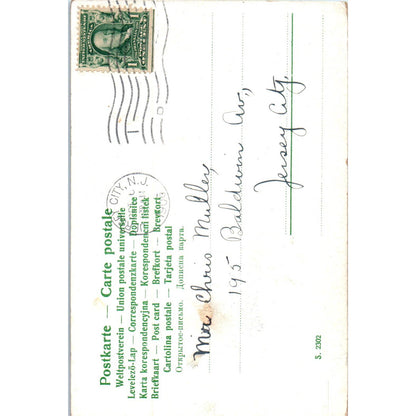 Postkarte — Carte postale
Weltpostverein — Union postale universelle
Levelező-Lap — Correspondenzkarte — Dopisnice
Karta korespondencyjna — Korespondencní lístek
Briefkaart — Post card — Brefkort — Brevkort
Cartolina postale — Tarjeta postal
Открытое-письмо. Дописна карта.
CITY, N.J.
Chris Muller,
195 Baldwin Av,
Jersey City.
S. 2302